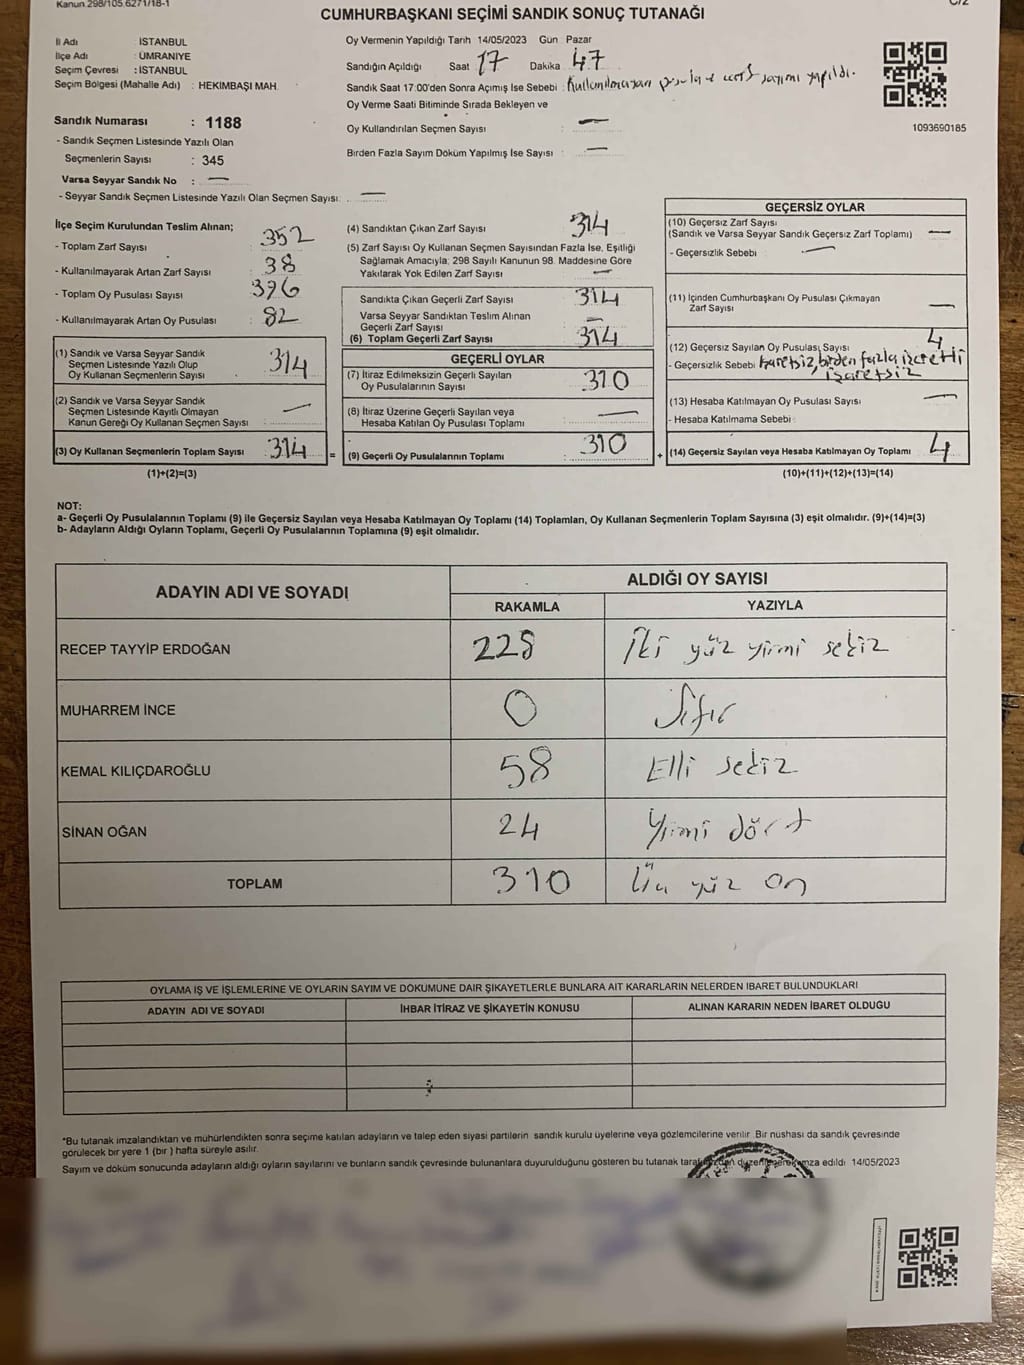 Kanun 298/105.6271/18-1
C/2
CUMHURBAŞKANI SEÇİMİ SANDIK SONUÇ TUTANAĞI
İl Adı : İSTANBUL
İlçe Adı : ÜMRANİYE
Seçim Çevresi : İSTANBUL
Seçim Bölgesi (Mahalle Adı) : HEKİMBAŞI MAH.
Sandık Numarası : 1188
- Sandık Seçmen Listesinde Yazılı Olan
Seçmenlerin Sayısı : 345
Varsa Seyyar Sandık No : —
- Seyyar Sandık Seçmen Listesinde Yazılı Olan Seçmen Sayısı: —
Oy Vermenin Yapıldığı Tarih 14/05/2023 Gün : Pazar
Sandığın Açıldığı Saat 17 Dakika 47
Sandık Saat 17:00'den Sonra Açımış İse Sebebi : Kullanılmayan pusula ve zarf sayımı yapıldı.
Oy Verme Saati Bitiminde Sırada Bekleyen ve
Oy Kullandırılan Seçmen Sayısı : —
Birden Fazla Sayım Döküm Yapılmış İse Sayısı : —
1093690185
İlçe Seçim Kurulundan Teslim Alınan;
- Toplam Zarf Sayısı : 352
- Kullanılmayarak Artan Zarf Sayısı : 38
- Toplam Oy Pusulası Sayısı : 396
- Kullanılmayarak Artan Oy Pusulası : 82
(1) Sandık ve Varsa Seyyar Sandık
Seçmen Listesinde Yazılı Olup
Oy Kullanan Seçmenlerin Sayısı : 314
(2) Sandık ve Varsa Seyyar Sandık
Seçmen Listesinde Kayıtlı Olmayan
Kanun Gereği Oy Kullanan Seçmen Sayısı : —
(3) Oy Kullanan Seçmenlerin Toplam Sayısı : 314 =
(1)+(2)=(3)
(4) Sandıktan Çıkan Zarf Sayısı : 314
(5) Zarf Sayısı Oy Kullanan Seçmen Sayısından Fazla İse, Eşitliği
Sağlamak Amacıyla; 298 Sayılı Kanunun 98. Maddesine Göre
Yakılarak Yok Edilen Zarf Sayısı : —
Sandıkta Çıkan Geçerli Zarf Sayısı : 314
Varsa Seyyar Sandıktan Teslim Alınan
Geçerli Zarf Sayısı : —
(6) Toplam Geçerli Zarf Sayısı : 314
GEÇERLİ OYLAR
(7) İtiraz Edilmeksizin Geçerli Sayılan
Oy Pusulalarının Sayısı : 310
(8) İtiraz Üzerine Geçerli Sayılan veya
Hesaba Katılan Oy Pusulası Toplamı : —
(9) Geçerli Oy Pusulalarının Toplamı : 310 +
GEÇERSİZ OYLAR
(10) Geçersiz Zarf Sayısı
(Sandık ve Varsa Seyyar Sandık Geçersiz Zarf Toplamı) : —
- Geçersizlik Sebebi : —
(11) İçinden Cumhurbaşkanı Oy Pusulası Çıkmayan
Zarf Sayısı : —
(12) Geçersiz Sayılan Oy Pusulası Sayısı : 4
- Geçersizlik Sebebi : işaretsiz, birden fazla işaretli
işaretsiz
(13) Hesaba Katılmayan Oy Pusulası Sayısı : —
- Hesaba Katılmama Sebebi :
(14) Geçersiz Sayılan veya Hesaba Katılmayan Oy Toplamı : 4
(10)+(11)+(12)+(13)=(14)
NOT:
a- Geçerli Oy Pusulalarının Toplamı (9) ile Geçersiz Sayılan veya Hesaba Katılmayan Oy Toplamı (14) Toplamları, Oy Kullanan Seçmenlerin Toplam Sayısına (3) eşit olmalıdır. (9)+(14)=(3)
b- Adayların Aldığı Oyların Toplamı, Geçerli Oy Pusulalarının Toplamına (9) eşit olmalıdır.
ADAYIN ADI VE SOYADI
ALDIĞI OY SAYISI
RAKAMLA YAZIYLA
RECEP TAYYİP ERDOĞAN 228 İki yüz yirmi sekiz
MUHARREM İNCE 0 Sıfır
KEMAL KILIÇDAROĞLU 58 Elli sekiz
SİNAN OĞAN 24 Yirmi dört
TOPLAM 310 Üç yüz on
OYLAMA İŞ VE İŞLEMLERİNE VE OYLARIN SAYIM VE DÖKÜMÜNE DAİR ŞİKAYETLERLE BUNLARA AİT KARARLARIN NELERDEN İBARET BULUNDUKLARI
ADAYIN ADI VE SOYADI İHBAR İTİRAZ VE ŞİKAYETİN KONUSU ALINAN KARARIN NEDEN İBARET OLDUĞU
*Bu tutanak imzalandıktan ve mühürlendikten sonra seçime katılan adayların ve talep eden siyasi partilerin sandık kurulu üyelerine veya gözlemcilerine verilir. Bir nüshası da sandık çevresinde
görülecek bir yere 1 (bir ) hafta süreyle asılır.
Sayım ve döküm sonucunda adayların aldığı oyların sayılarını ve bunların sandık çevresinde bulunanlara duyurulduğunu gösteren bu tutanak tarafımızdan düzenlenerek imza edildi 14/05/2023